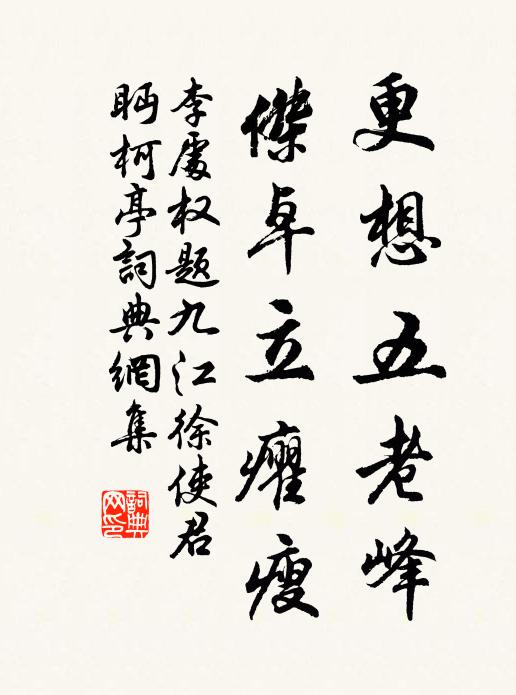 更想五老峰
傑卓立癯瘦
李處权題九江徐使君
眄柯亭詞典網集
詞典网印